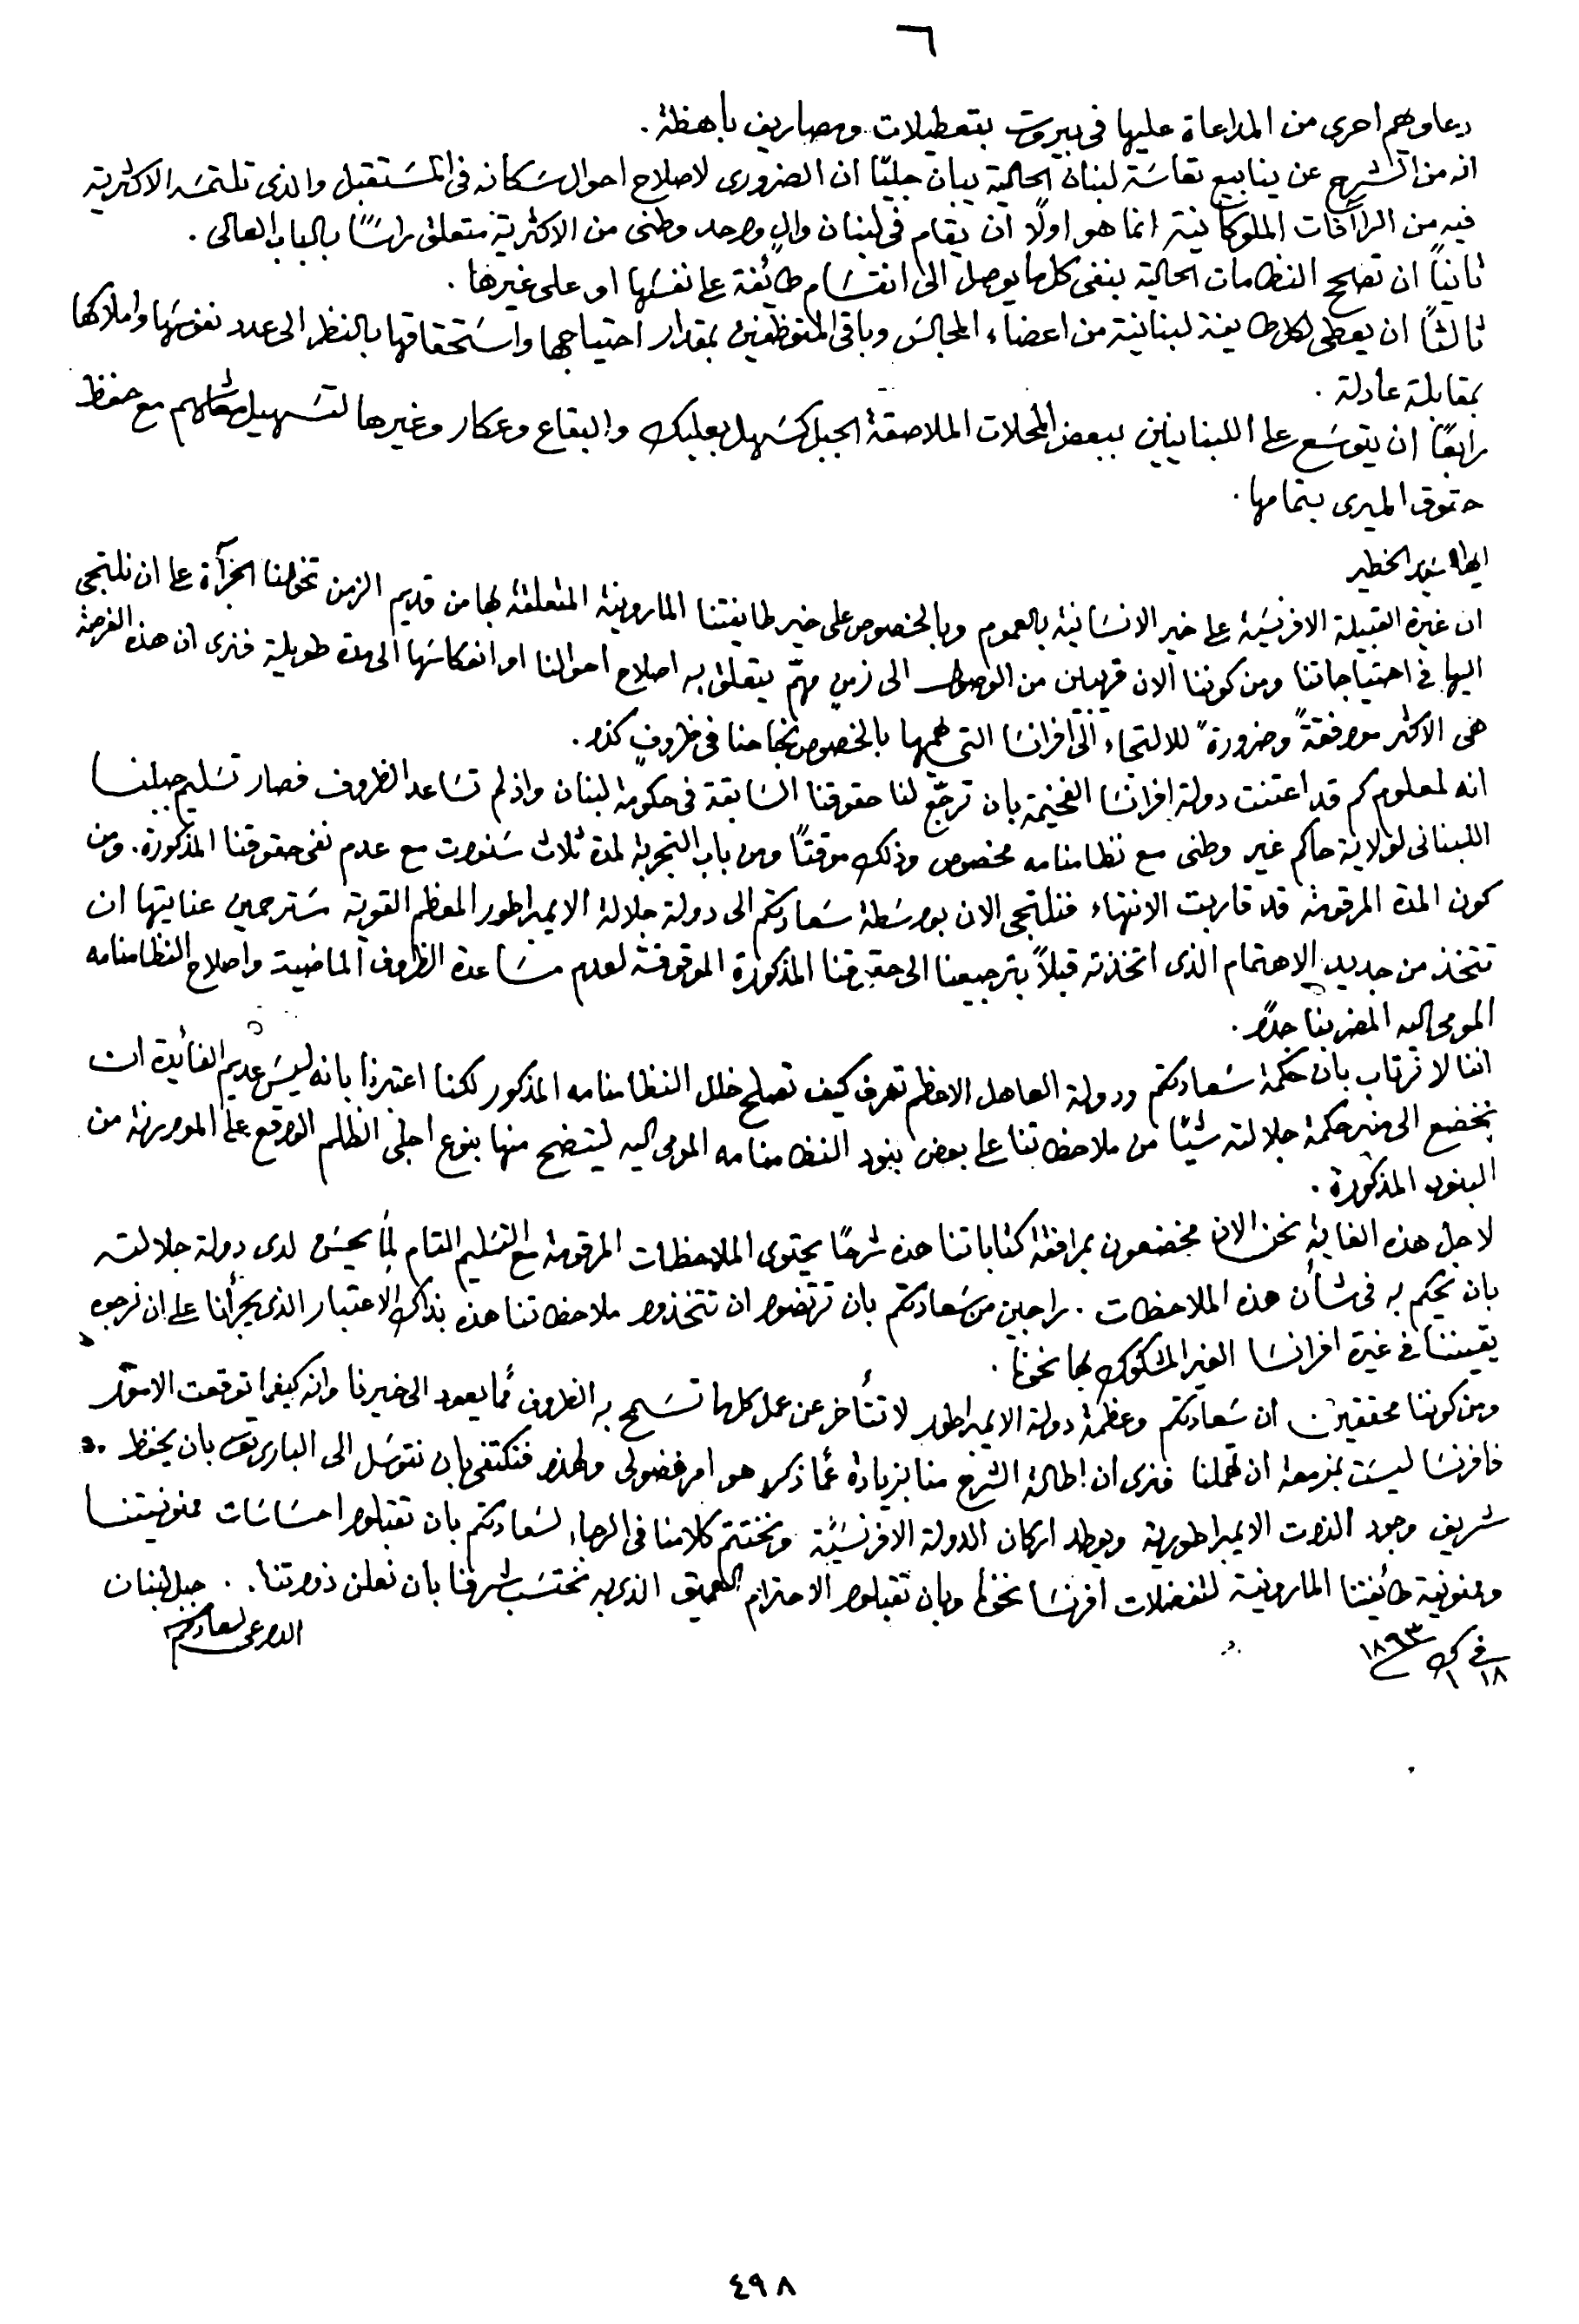 ٦
دعاويهم احرى من المداعاة عليها فى بيروت بتعطيلات ومصاريف باهظة.
انه من الشرح عن ينابيع تعاسَة لبنان الحالية يبان جليًّا ان الضرورى لاصلاح احوال سَكانه فى المسَتقبل والذى تلتمسَه الاكثرية
فيه من الراآفات الملوكانية انما هو اولًا ان يقام فى لبنان والٍ واحد وطنى من الاكثرية متعلق راسًا بالباب العالى.
ثانيًا ان تصلح النظامات الحالية بنفى كلما يوصل الى انقسَام طائفة على نفسَها او على غيرها.
ثالثًا ان يعطى لكل طايفة لبنانية من اعضاء المجالسَ وباقى المتوظفين بمقدار احتياجها واسَتحقاقها بالنظر الى عدد نفوسَها واملاكها
بمقابلة عادلة.
رابعًا ان يتوسَع على اللبنانيين ببعض المحلات الملاصقة الجبل كسَهل بعلبك والبقاع وعكار وغيرها لتسَهيل معاشهم مع حفظ
حقوق الميرى بتمامها.
ايها السَيد الخطير
ان غيرة القبيلة الافرنسَية على خير الانسَانية بالعموم وبالخصوص على خير طايفتنا المارونية المتعلقة بها من قديم الزمن تخولنا الجرآة على ان نلتجى
اليها فى احتياجاتنا ومن كوننا الان قريبين من الوصول الى زمنٍ مهمّ يتعلق به اصلاح احوالنا او انعكاسَها الى مدة طويلة فنرى ان هذه الفرصة
هى الاكثر موافقةً وضرورةً للالتجاء الى افرانسَا التى يهمها بالخصوص نجاحنا فى ظروفٍ كذا.
انه لمعلومكم قد اعتنت دولة افرانسَا الفخيمة بان ترجّع لنا حقوقنا السَابقة فى حكومة لبنان واذ لم تسَاعد الظروف فصار تسَليم جبلنا
اللبنانى لولاية حاكم غير وطنى مع نظامنامه مخصوص وذلك موقتًا ومن باب التجربة لمدة ثلاث سَنوات مع عدم نفى حقوقنا المذكورة. ومن
كون المدة المرقومة قد قاربت الانتهاء فنلتجى الان بواسَطة سَعادتكم الى دولة جلالة الايمبراطور المعظم القوية سَترحمين عنايتها ان
تتخذ من جديد الاهتمام الذى اتخذته قبلاً بترجيعنا الى حقوقنا المذكورة الموقوفة لعدم مسَاعدة الظروف الماضية واصلاح النظامنامه
المومى اليه المضر بنا جدًا.
اننا لا نرتاب بان حكمة سَعادتكم ودولة العاهل الاعظم تعرف كيف تصلح خلل النظامنامه المذكور لكننا اعتبرنا بانه ليسَ عديم الفائدة ان
نخضع الى حكمة جلالته شيًا من ملاحظاتنا على بعض بنود النظامنامه المومى اليه ليتضح منها بنوع اجلى الظلم الواقع على الموارنة من
البنود المذكورة.
لاجل هذه الغاية نحن الان مخضعون بمرافقة كتاباتنا هذه شرحًا يحتوى الملاحظات المرقومة مع التسَليم التام لما يحسَن لدى دولة جلالته
بان يحكم به فى شأن هذه الملاحظات. راجين من سَعادتكم بان ترتضوا ان تتخذوا ملاحظاتنا هذه بذاك الاعتبار الذى يجرأنا على ان نرجوه
يقيننا فى غيرة افرانسَا الغير المشكوك بها نحونا.
ومن كوننا محققين ان سَعادتكم وعظمة دولة الايمبراطور لا تتأخر عن عمل كلما تسَمح به الظروف مما يعود الى خيرنا وانه كيفما توقعت الامور
فافرنسَا ليسَت بمزمعة ان تهملنا فنرى ان اطالة الشرح منا بزيادة عمّا ذكر هو امر فضولى ولهذا فنكتفى بان نتوسَل الى البارى تعالى بان يحفظ
شريف وجود الذات الايمبراطورية ويوطد اركان الدولة الافرنسَيّة ونختتم كلامنا فى الرجاء لسَعادتكم بان تقبلوا احسَاسَات ممنونيتنا
وممنونية طائفتنا المارونية لتفضلات افرنسَا نحونا وبان تقبلوا الاحترام العميق الذى به نحتسَب شرفنا بان نعلن ذواتنا. جبل لبنان
فى ١٨ ك١ ١٨٦٣
الداعى لسعادتكم
٤٩٨